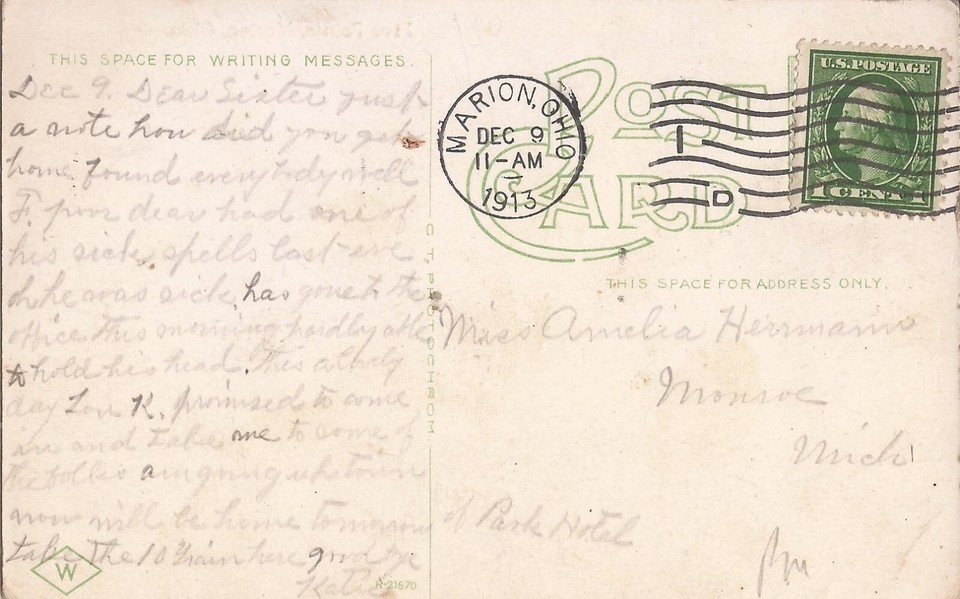 THIS SPACE FOR WRITING MESSAGES.
Dec 9. Dear Sister just
a note how did you get
home. found everybody well
F. poor dear had one of
his sick spells last eve
oh he was sick, has gone to the
office this morning hardly able
to hold his head. This a lovely
day Lou K. promised to come
in and take me to some of
the folks am going up town
now will be home tomorrow
take the 10 train here good bye
Katie
W
R-21570
C T PHOTOCHROM
POST CARD
MARION, OHIO
DEC 9
11-AM
1913
1
D
U.S. POSTAGE
1 CENT 1
THIS SPACE FOR ADDRESS ONLY.
Miss Amelia Herrmann
Monroe
Mich
Park Hotel